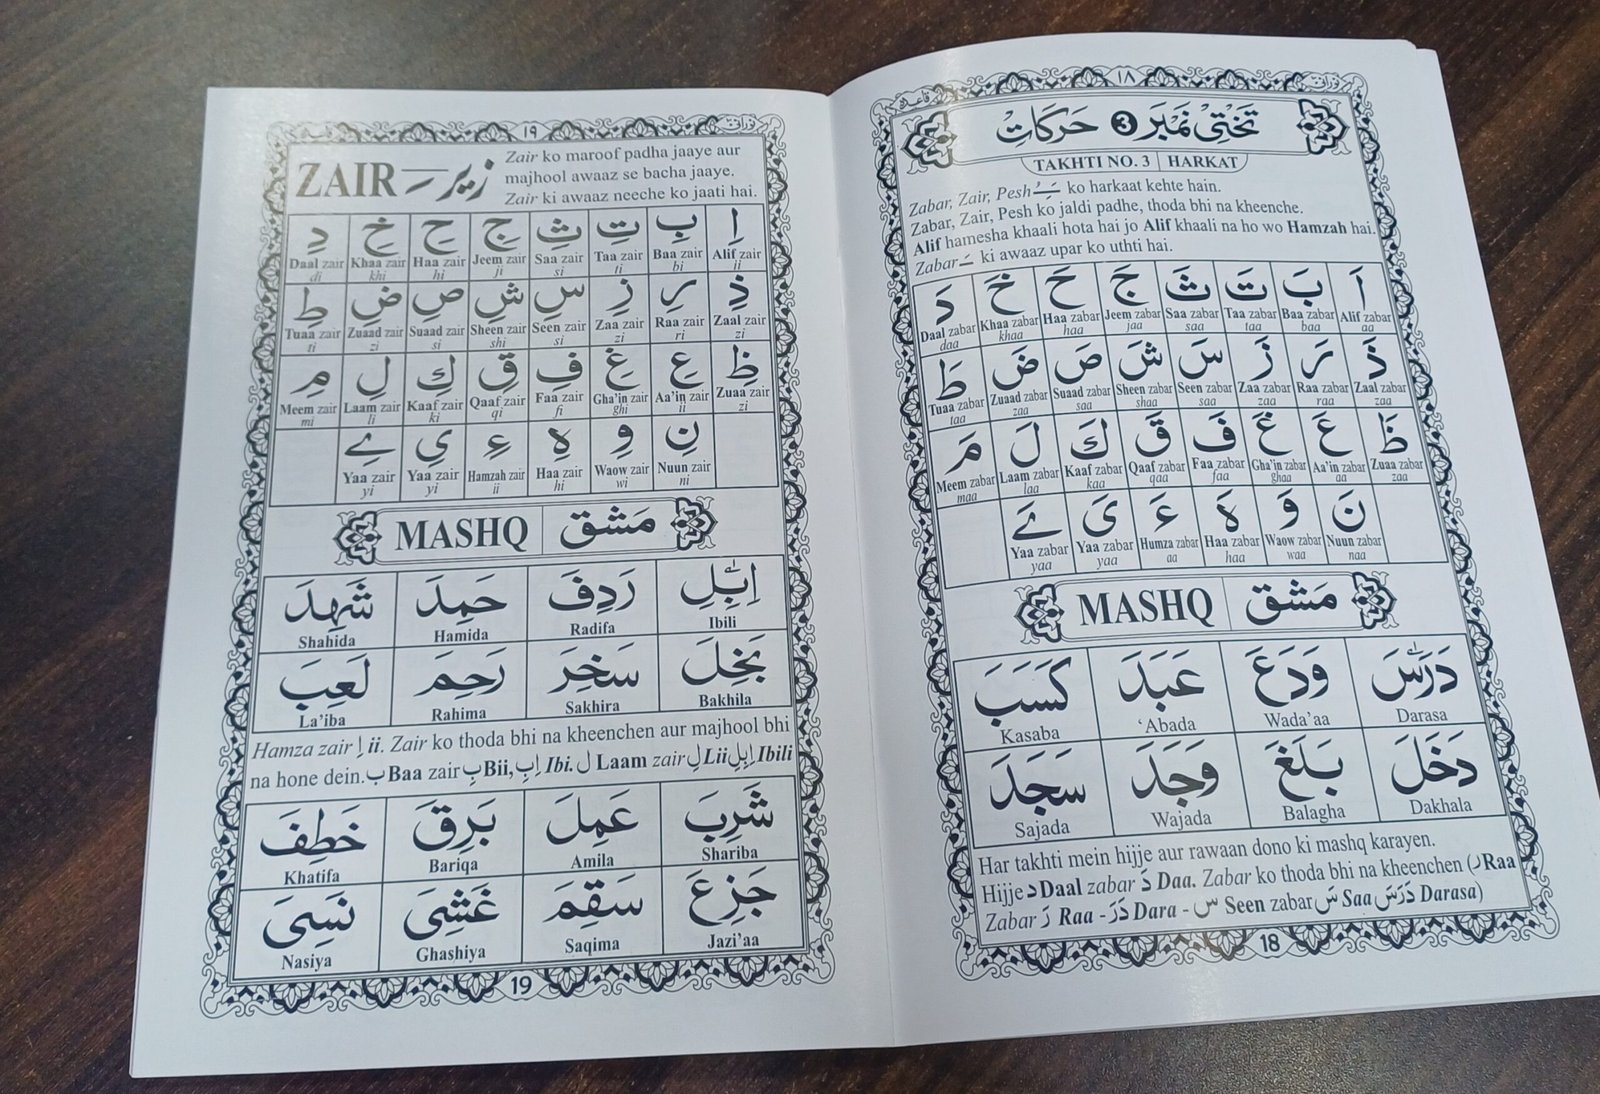 قاعدہ ١٨ نورانی
تختی نمبر 3 حَرَکَاتْ
TAKHTI NO. 3 | HARKAT
Zabar, Zair, Pesh ـَـِـُ ko harkaat kehte hain.
Zabar, Zair, Pesh ko jaldi padhe, thoda bhi na kheenche.
Alif hamesha khaali hota hai jo Alif khaali na ho wo Hamzah hai.
Zabar ـَ ki awaaz upar ko uthti hai.
اَ بَ تَ ثَ جَ حَ خَ دَ
Alif zabar Baa zabar Taa zabar Saa zabar Jeem zabar Haa zabar Khaa zabar Daal zabar
aa baa taa saa jaa haa khaa daa
ذَ رَ زَ سَ شَ صَ ضَ طَ
Zaal zabar Raa zabar Zaa zabar Seen zabar Sheen zabar Suaad zabar Zuaad zabar Tuaa zabar
zaa raa zaa saa shaa saa zaa taa
ظَ عَ غَ فَ قَ كَ لَ مَ
Zuaa zabar Aa'in zabar Gha'in zabar Faa zabar Qaaf zabar Kaaf zabar Laam zabar Meem zabar
zaa aa ghaa faa qaa kaa laa maa
نَ وَ هَ ءَ یَ ےَ
Nuun zabar Waow zabar Haa zabar Humza zabar Yaa zabar Yaa zabar
naa waa haa aa yaa yaa
MASHQ مَشق
دَرَسَ وَدَعَ عَبَدَ كَسَبَ
Darasa Wada'aa 'Abada Kasaba
دَخَلَ بَلَغَ وَجَدَ سَجَدَ
Dakhala Balagha Wajada Sajada
Har takhti mein hijje aur rawaan dono ki mashq karayen.
Hijje د Daal zabar دَ Daa. Zabar ko thoda bhi na kheenchen (ر Raa
Zabar رَ Raa - دَرَ Dara - س Seen zabar سَ Saa دَرَسَ Darasa)
18
قاعدہ ١٩ نورانی
ZAIR ـِ زیر
Zair ko maroof padha jaaye aur
majhool awaaz se bacha jaaye.
Zair ki awaaz neeche ko jaati hai.
اِ بِ تِ ثِ جِ حِ خِ دِ
Alif zair Baa zair Taa zair Saa zair Jeem zair Haa zair Khaa zair Daal zair
ii bi ti si ji hi khi di
ذِ رِ زِ سِ شِ صِ ضِ طِ
Zaal zair Raa zair Zaa zair Seen zair Sheen zair Suaad zair Zuaad zair Tuaa zair
zi ri zi si shi si zi ti
ظِ عِ غِ فِ قِ كِ لِ مِ
Zuaa zair Aa'in zair Gha'in zair Faa zair Qaaf zair Kaaf zair Laam zair Meem zair
zi ii ghi fi qi ki li mi
نِ وِ هِ ءِ یِ ےِ
Nuun zair Waow zair Haa zair Hamzah zair Yaa zair Yaa zair
ni wi hi ii yi yi
MASHQ مَشق
اِبِلِ رَدِفَ حَمِدَ شَهِدَ
Ibili Radifa Hamida Shahida
بَخِلَ سَخِرَ رَحِمَ لَعِبَ
Bakhila Sakhira Rahima La'iba
Hamza zair اِ ii. Zair ko thoda bhi na kheenchen aur majhool bhi
na hone dein. ب Baa zair بِ Bii, اِبِ Ibi. ل Laam zair لِ Lii اِبِلِ Ibili
شَرِبَ عَمِلَ بَرِقَ خَطِفَ
Shariba Amila Bariqa Khatifa
جَزِعَ سَقِمَ غَشِیَ نَسِیَ
Jazi'aa Saqima Ghashiya Nasiya
19